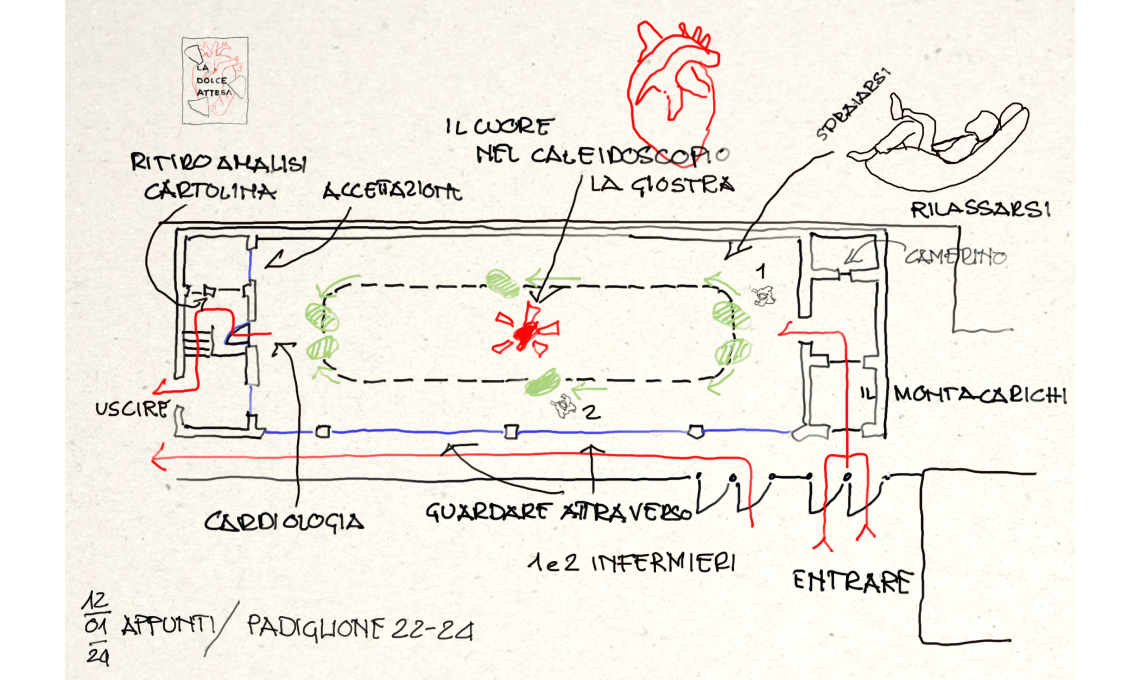 LA
DOLCE
ATTESA
IL CUORE
NEL CALEIDOSCOPIO
LA GIOSTRA
SDRAIARSI
RITIRO ANALISI
CARTOLINA
ACCETTAZIONE
RILASSARSI
CAMERINO
1
USCIRE
2
IL MONTACARICHI
CARDIOLOGIA
GUARDARE ATTRAVERSO
1 e 2 INFERMIERI
ENTRARE
12
01
24
APPUNTI / PADIGLIONE 22-24